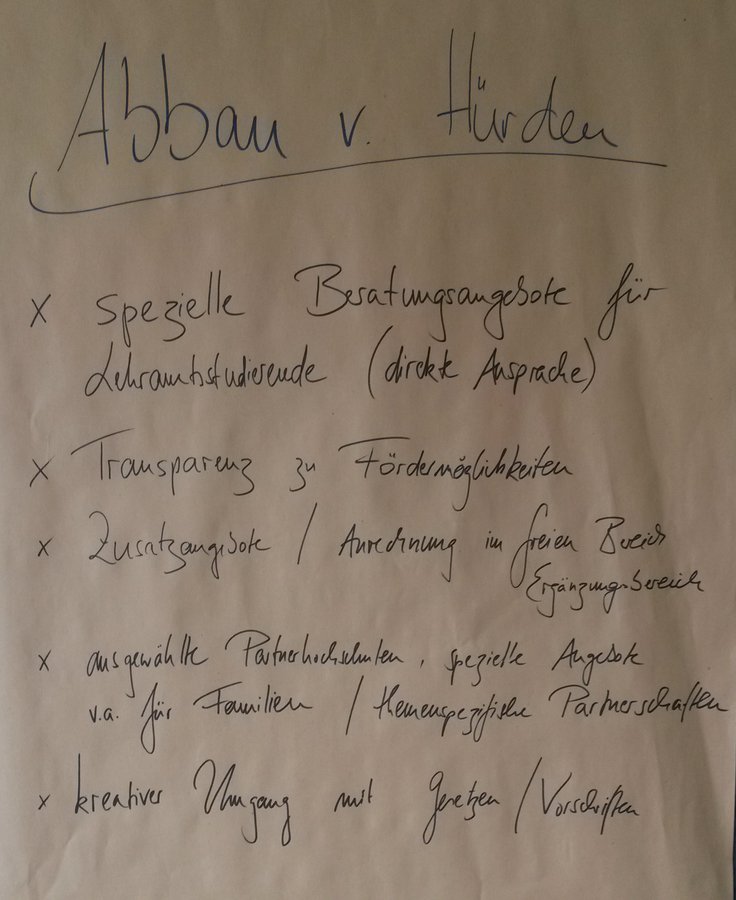 Abbau v. Hürden
x spezielle Beratungsangebote für
Lehramtsstudierende (direkte Ansprache)
x Transparenz zu Fördermöglichkeiten
x Zusatzangebote / Anrechnung im freien Bereich
Ergänzungsbereich
x ausgewählte Partnerhochschulen, spezielle Angebote
v.a. für Familien / themenspezifische Partnerschaften
x kreativer Umgang mit Gesetzen / Vorschriften